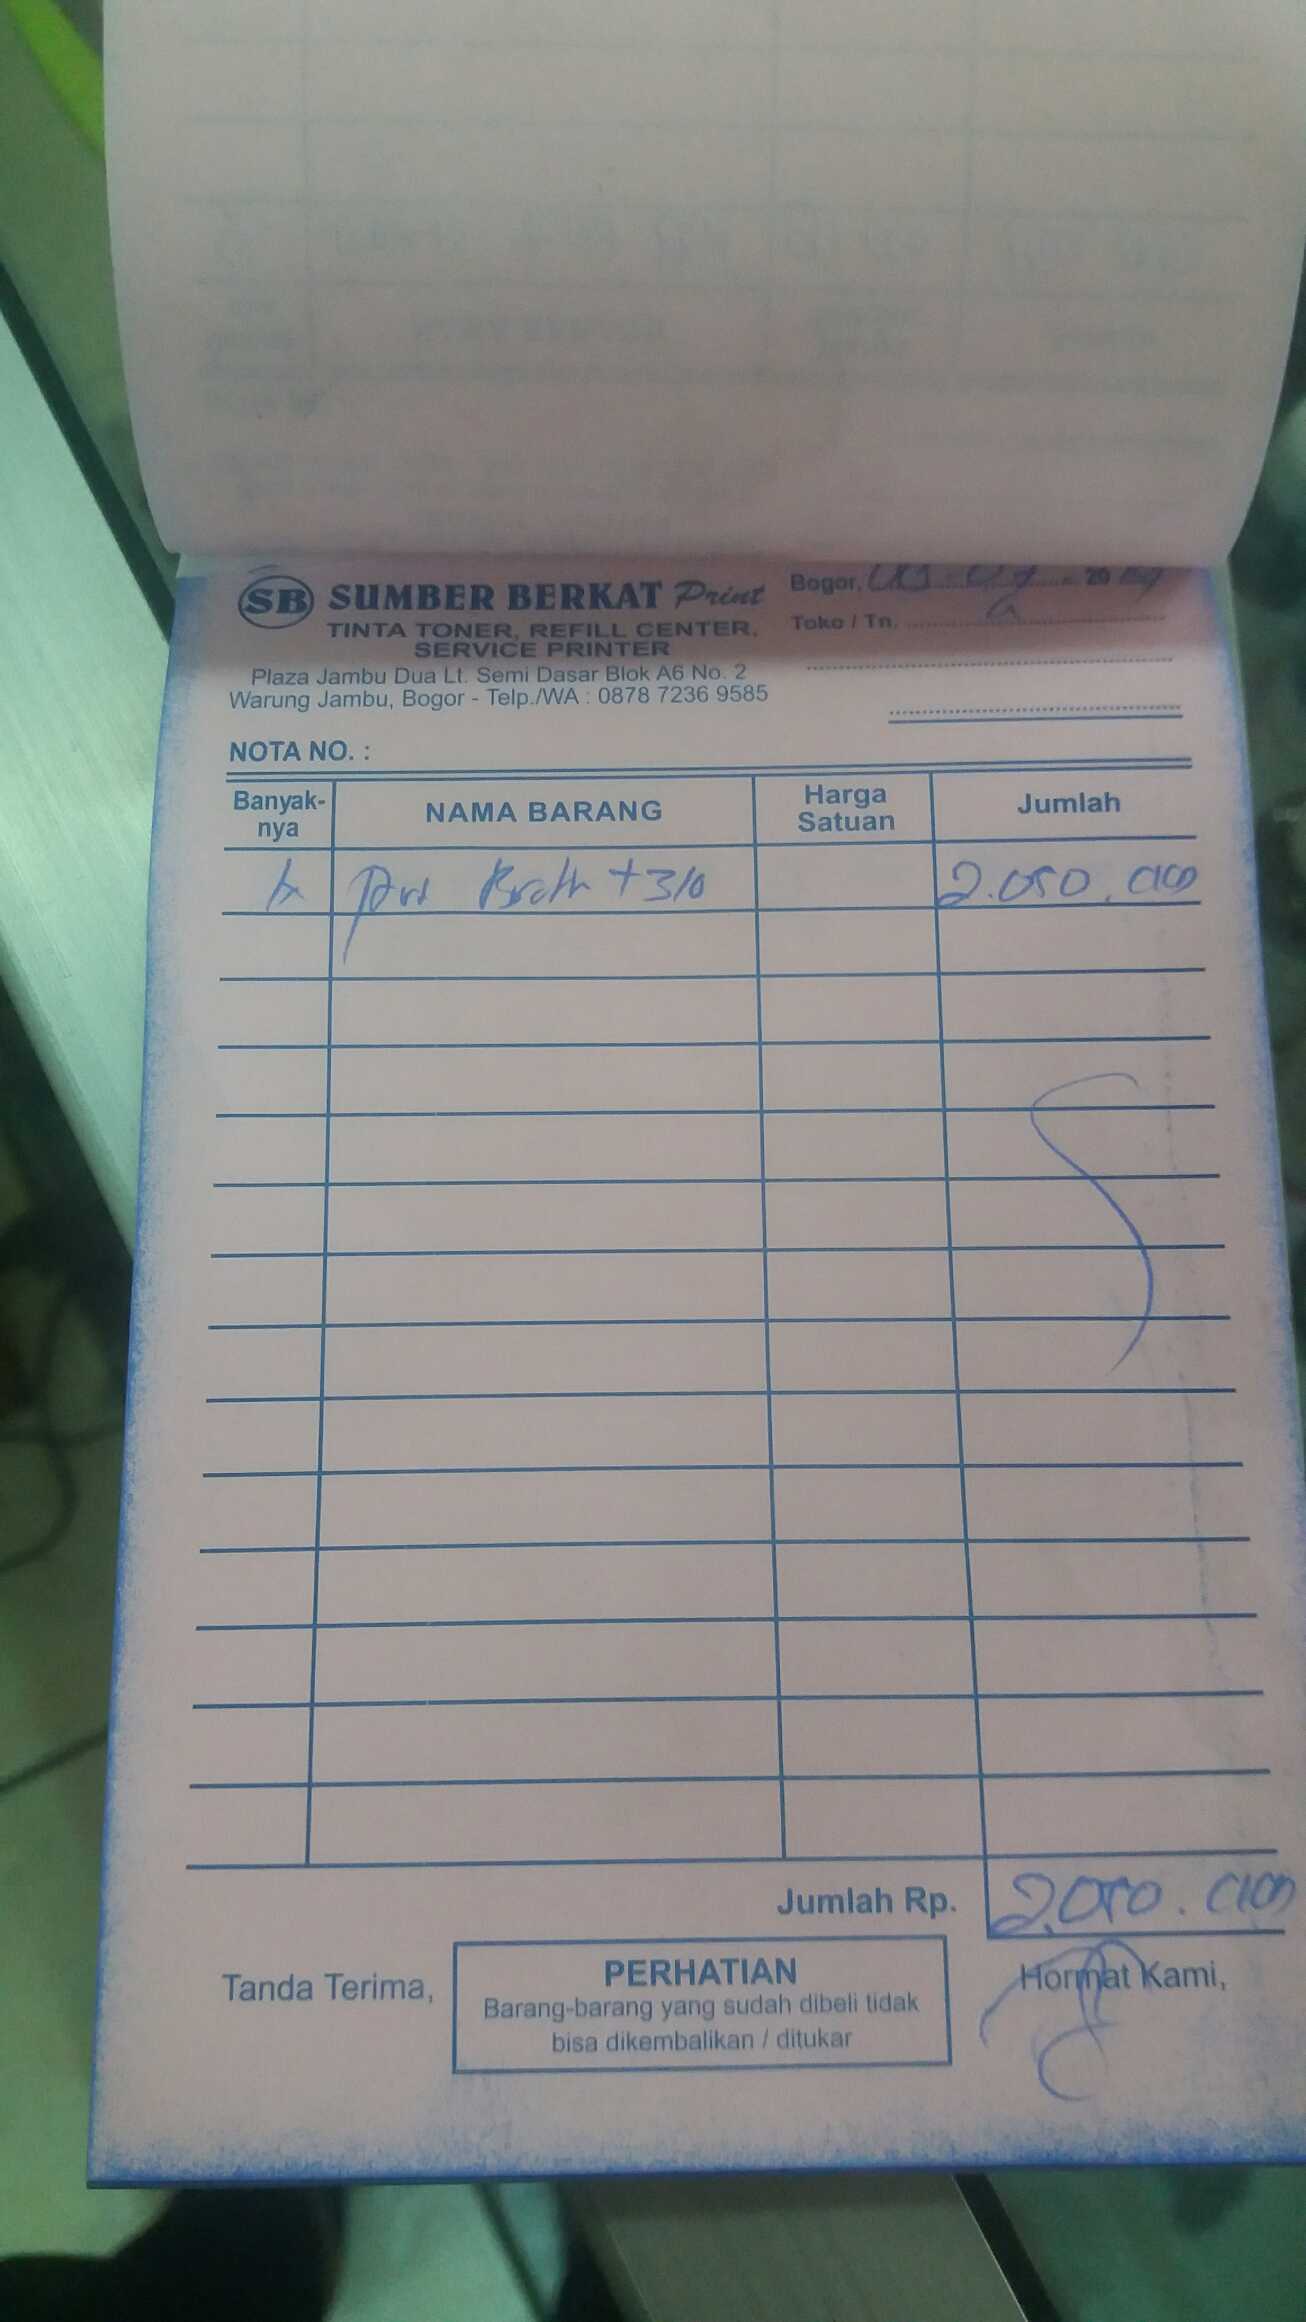 SB SUMBER BERKAT Print
TINTA TONER, REFILL CENTER,
SERVICE PRINTER
Plaza Jambu Dua Lt. Semi Dasar Blok A6 No. 2
Warung Jambu, Bogor - Telp./WA : 0878 7236 9585
Bogor, 20
Toko / Tn.
NOTA NO. :
Banyak-nya NAMA BARANG Harga Satuan Jumlah
+310 2.050.000
Jumlah Rp. 2.050.000
Tanda Terima,
PERHATIAN
Barang-barang yang sudah dibeli tidak
bisa dikembalikan / ditukar
Hormat Kami,